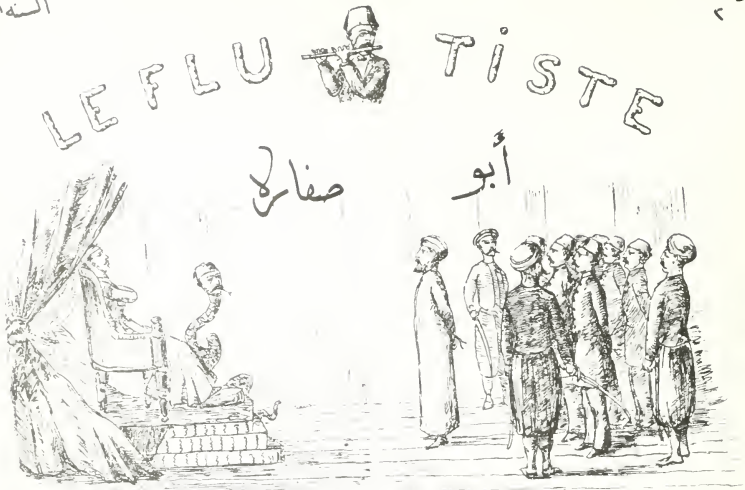 السنه
٢
LE FLUTISTE
أبو صفاره